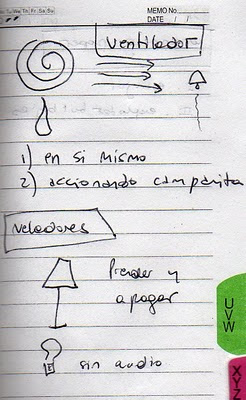 Su Mo Tu We Th Fr Sa Su
MEMO No
DATE / /
ventilador
1) en si mismo
2) accionando campanita
Veladores
Prender y
apagar
sin audio
UVW
XYZ